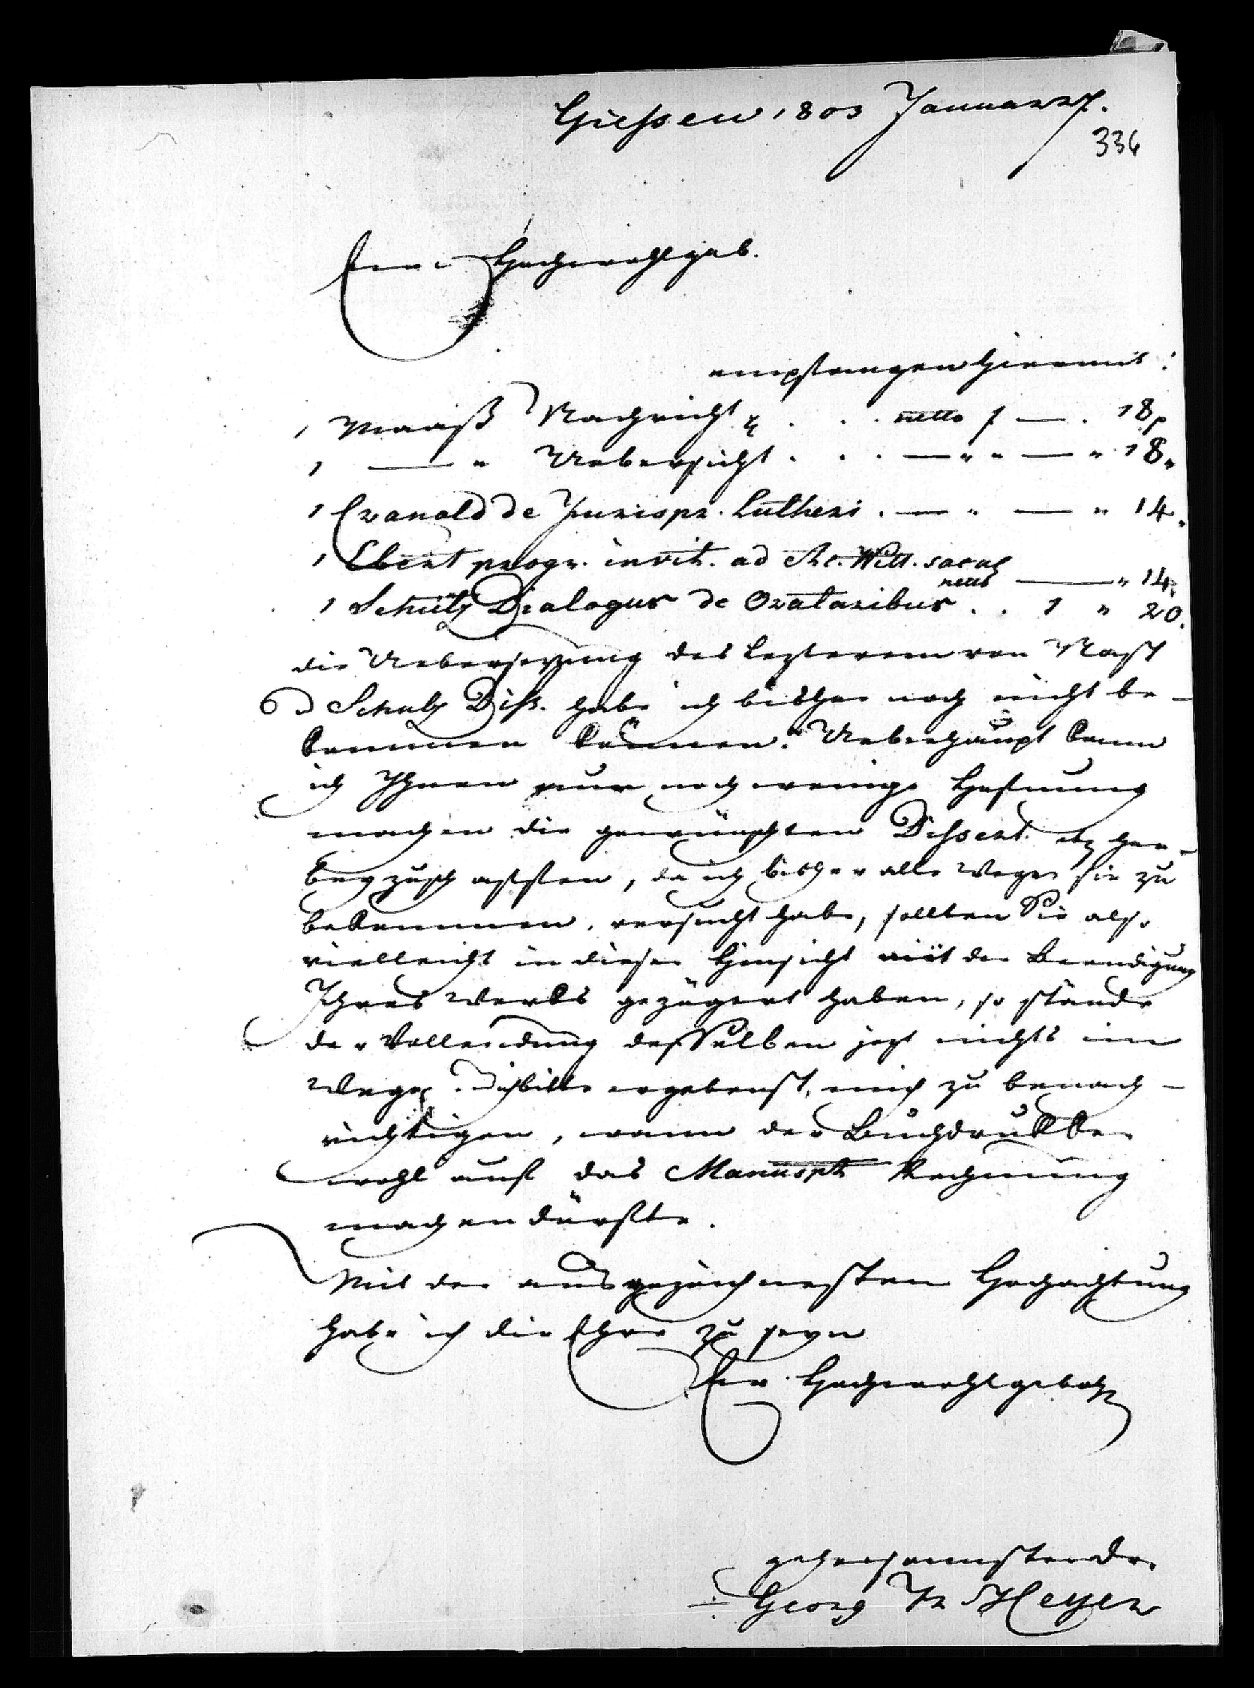 Giessen 1803 Januar 27.
336
Euer Hochwohlgeb.
empfangen hiermit:
1 Maaß Nachricht . . . netto f — . 18
1 — " Uebersicht . . . — " " — " 18.
1 Cranold de Jurispr. Lutheri . — " — " 14.
1 Ebert progr. invit. ad Ac. Witt. sacul
netto — " 14.
1 Schulz Dialogus de Oratoribus . . 1 " 20.
die Uebersetzung des lezterem von Nast
Schulz Diss. habe ich bisher noch nicht be-
kommen können. Ueberhaupt kann
ich Ihnen nur noch wenige Hofnung
machen die gewünschten Dissert. her-
beyzuschaffen, da ich bisher alle Wege sie zu
bekommen, versucht habe, sollten Sie also
vielleicht in dieser Hinsicht mit der Beendigung
Ihres Werks gezögert haben, so stände
der Vollendung desselben jezt nichts im
Wege. Ich bitte ergebenst, mich zu benach-
richtigen, wann der Buchdrukker
wohl auf das Manuspt Rechnung
machen dürfte.
Mit der ausgezeichnesten Hochachtung
habe ich die Ehre zu seyn
Euer Hochwohlgeb
gehorsamster Dr.
Georg Fr Heyer